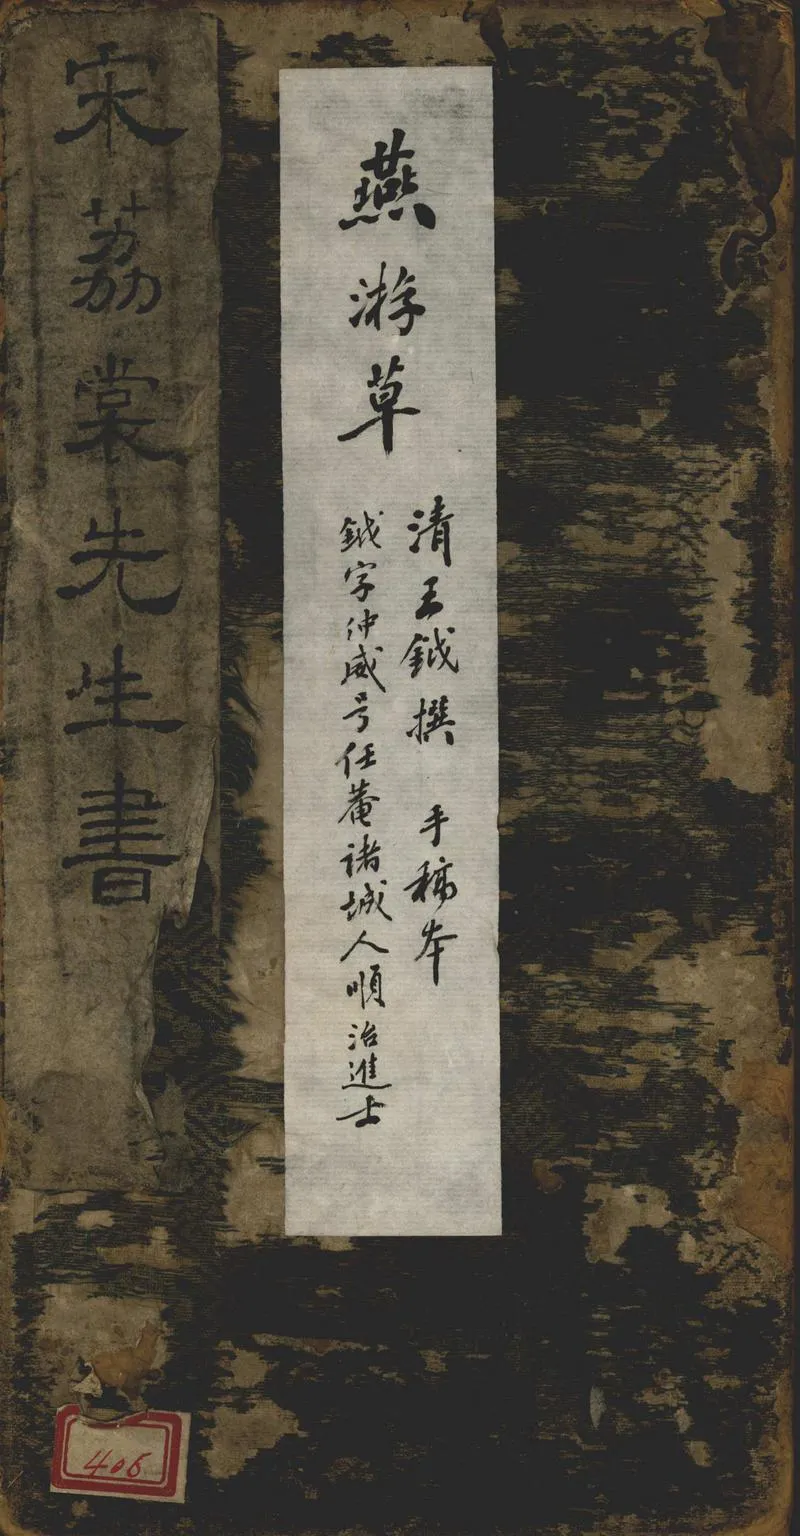 燕游草
清王鉞撰 手稿本
鉞字仲威号任菴諸城人順治進士
宋荔裳先生書
406